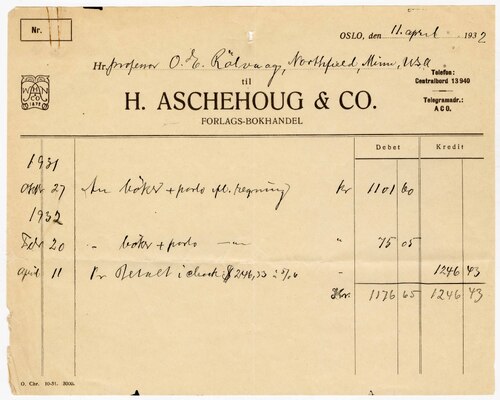 Nr.
OSLO, den 11. april 1932
Hr. professor O. E. Rölvaag, Northfield, Minn, USA
til
Telefon:
Centralbord 13940
Telegramadr.:
ACO.
H. ASCHEHOUG & CO.
FORLAGS-BOKHANDEL
1872
Debet Kredit
1931
Oktbr 27 An böker + porto ifl. regning kr 1101 60
1932
Febr 20 " böker + porto — " — " 75 05
April 11 Pr Betalt i check $ 246,33 - 1246 43
Kr. 1176 65 1246 43
O. Chr. 10-31. 3000.